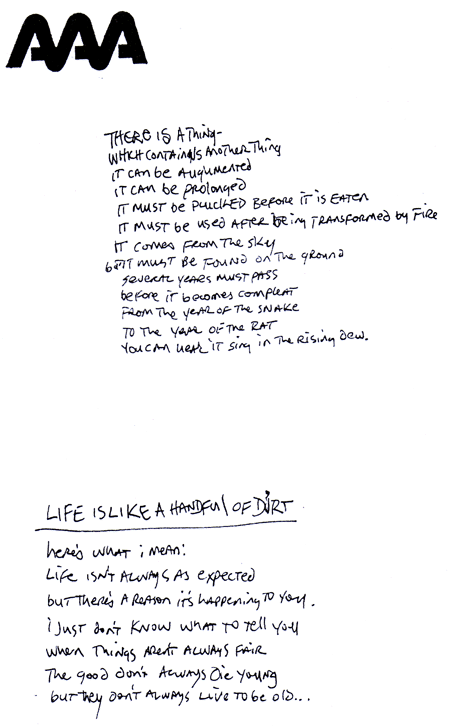 AAA
THERE IS A Thing-
WHICH CONTAINS ANOTHER Thing
IT CAN be AUGUMENTED
IT CAN be PROLONGED
IT MUST BE PLUCKED BEFORE IT IS EATEN
IT MUST be USED AFTER BEING TRANSFORMED by FIRE
IT COMES FROM The SKY
but IT MUST BE FOUND ON THE GROUND
SEVERAL YEARS MUST PASS
BEFORE IT BECOMES COMPLEAT
FROM THE YEAR OF THE SNAKE
TO THE YEAR OF THE RAT
YOU CAN HEAR IT Sing in The Rising Dew.
LIFE IS LIKE A HANDFUL OF DiRT
here's WHAT i MEAN:
LIFE ISN'T ALWAYS AS expected
but THERE'S A REASON it's happening TO YOU.
i JUST don't KNOW WHAT TO Tell YOU
WHEN THINGS AREN'T ALWAYS FAIR
The good don't ALWAYS Die Young
but they DON'T ALWAYS LIVE TO be old...